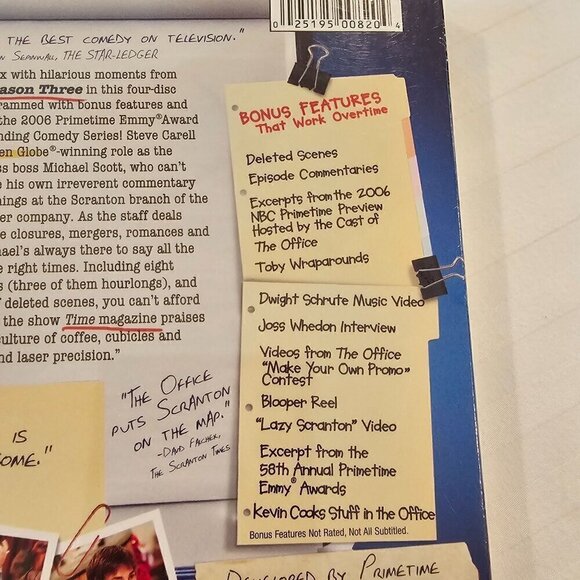 0 25195 00820 4
THE BEST COMEDY ON TELEVISION."
SEPINWALL, THE STAR-LEDGER
x with hilarious moments from
ason Three in this four-disc
rammed with bonus features and
the 2006 Primetime Emmy® Award
nding Comedy Series! Steve Carell
en Globe®-winning role as the
ss boss Michael Scott, who can't
e his own irreverent commentary
nings at the Scranton branch of the
er company. As the staff deals
e closures, mergers, romances and
hael's always there to say all the
e right times. Including eight
s (three of them hourlongs), and
f deleted scenes, you can't afford
the show Time magazine praises
culture of coffee, cubicles and
nd laser precision."
"THE OFFICE
PUTS SCRANTON
ON THE MAP."
-DAVID FALCHEK,
THE SCRANTON TIMES
IS
OME."
BONUS FEATURES
That Work Overtime
Deleted Scenes
Episode Commentaries
Excerpts from the 2006
NBC Primetime Preview
Hosted by the Cast of
The Office
Toby Wraparounds
Dwight Schrute Music Video
Joss Whedon Interview
Videos from The Office
"Make Your Own Promo"
Contest
Blooper Reel
"Lazy Scranton" Video
Excerpt from the
58th Annual Primetime
Emmy® Awards
Kevin Cooks Stuff in the Office
Bonus Features Not Rated, Not All Subtitled.
DEVELOPED BY PRIMETIME